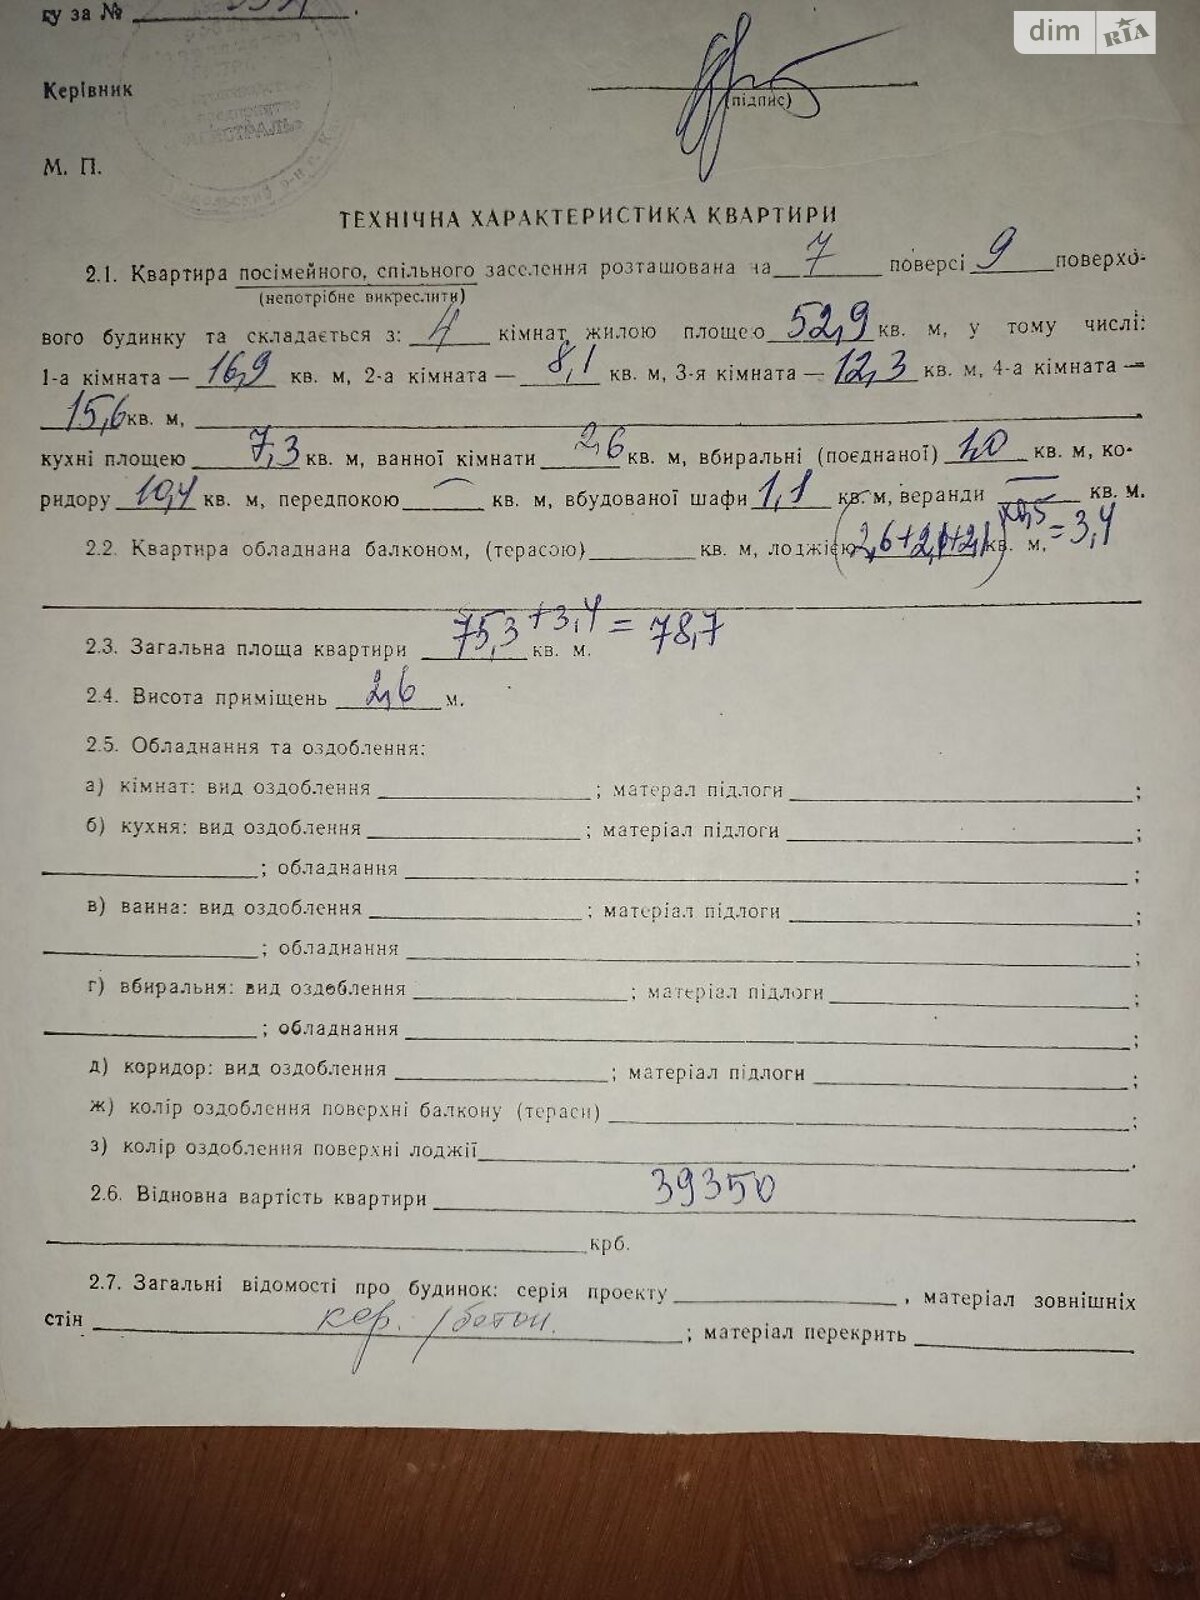 ку за №
dim RIA
Керівник
(підпис)
М. П.
ТЕХНІЧНА ХАРАКТЕРИСТИКА КВАРТИРИ
2.1. Квартира посімейного, спільного заселення розташована на 7 поверсі 9 поверхо-
(непотрібне викреслити)
вого будинку та складається з: 4 кімнат, жилою площею 52,9 кв. м, у тому числі:
1-а кімната — 16,9 кв. м, 2-а кімната — 8,1 кв. м, 3-я кімната — 12,3 кв. м, 4-а кімната —
15,6 кв. м,
кухні площею 7,3 кв. м, ванної кімнати 2,6 кв. м, вбиральні (поєднаної) 1,0 кв. м, ко-
ридору 10,4 кв. м, передпокою — кв. м, вбудованої шафи 1,1 кв. м, веранди — кв. м.
2.2. Квартира обладнана балконом, (терасою) кв. м, лоджією (2,6+2,1+2,1) х0,5 кв. м, =3,4
2.3. Загальна площа квартири 75,3 +3,4 = 78,7 кв. м.
2.4. Висота приміщень 2,6 м.
2.5. Обладнання та оздоблення:
а) кімнат: вид оздоблення ; матерал підлоги ;
б) кухня: вид оздоблення ; матеріал підлоги ;
; обладнання ;
в) ванна: вид оздоблення ; матеріал підлоги ;
; обладнання ;
г) вбиральня: вид оздоблення ; матеріал підлоги ;
; обладнання ;
д) коридор: вид оздоблення ; матеріал підлоги ;
ж) колір оздоблення поверхні балкону (тераси) ;
з) колір оздоблення поверхні лоджії .
2.6. Відновна вартість квартири 39350
крб.
2.7. Загальні відомості про будинок: серія проекту , матеріал зовнішніх
стін кер. /бетон. ; матеріал перекрить